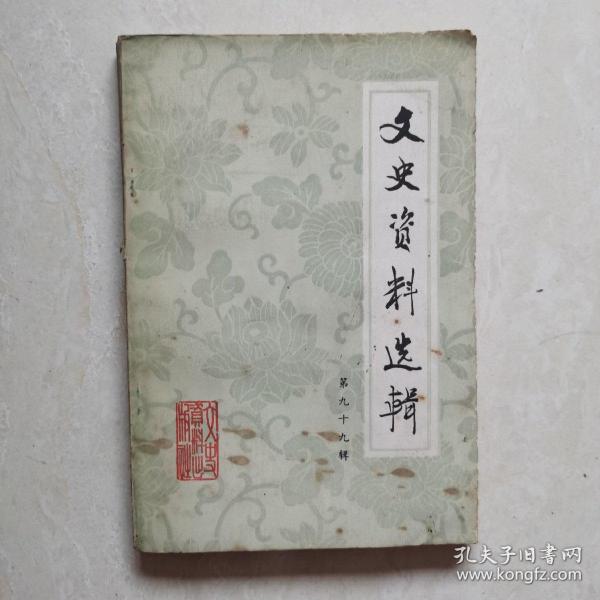 文史资料选辑
第九十九辑
文史資料出版社
孔夫子旧书网
www.kongfz.com